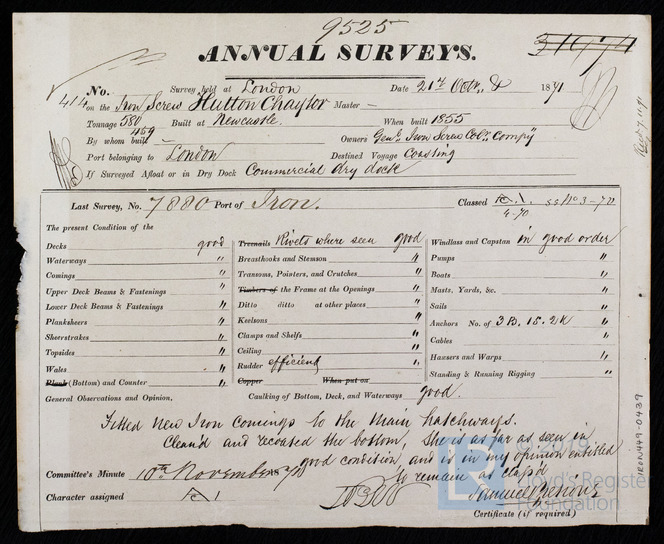 9525
ANNUAL SURVEYS.
31474
No. Survey held at London Date 21st Octr. & 1871
414 on the Iron Screw Hutton Chaytor Master —
Tonnage 580 Built at Newcastle. When built 1855
459
By whom built — Owners Genl. Iron Screw Colr. Compy
Port belonging to London Destined Voyage Coasting
If Surveyed Afloat or in Dry Dock Commercial dry dock
Last Survey, No. 7880 Port of Iron. Classed A.1. ss No 3-70
4.70
The present Condition of the
Decks good Treenails Rivets where seen good Windlass and Capstan in good order
Waterways " Breasthooks and Stemson " Pumps "
Comings " Transoms, Pointers, and Crutches " Boats "
Upper Deck Beams & Fastenings " Timbers of the Frame at the Openings " Masts, Yards, &c. "
Lower Deck Beams & Fastenings " Ditto ditto at other places " Sails "
Planksheers " Keelsons " Anchors No. of 3 B. 1S. 2K "
Sheerstrakes " Clamps and Shelfs " Cables "
Topsides " Ceiling " Hawsers and Warps "
Wales " Rudder efficient " Standing & Running Rigging "
Plank (Bottom) and Counter " Copper When put on
General Observations and Opinion, Caulking of Bottom, Deck, and Waterways good.
Fitted New Iron Comings to the Main hatchways.
Clean'd and recoated the bottom, She is as far as seen in
good condition and is in my opinion entitled
to remain as class'd
Committee's Minute 10th November 71
Character assigned A 1
Certificate (if required)
IRON449-0439
© 2019
LR
Lloyd's Register
Foundation